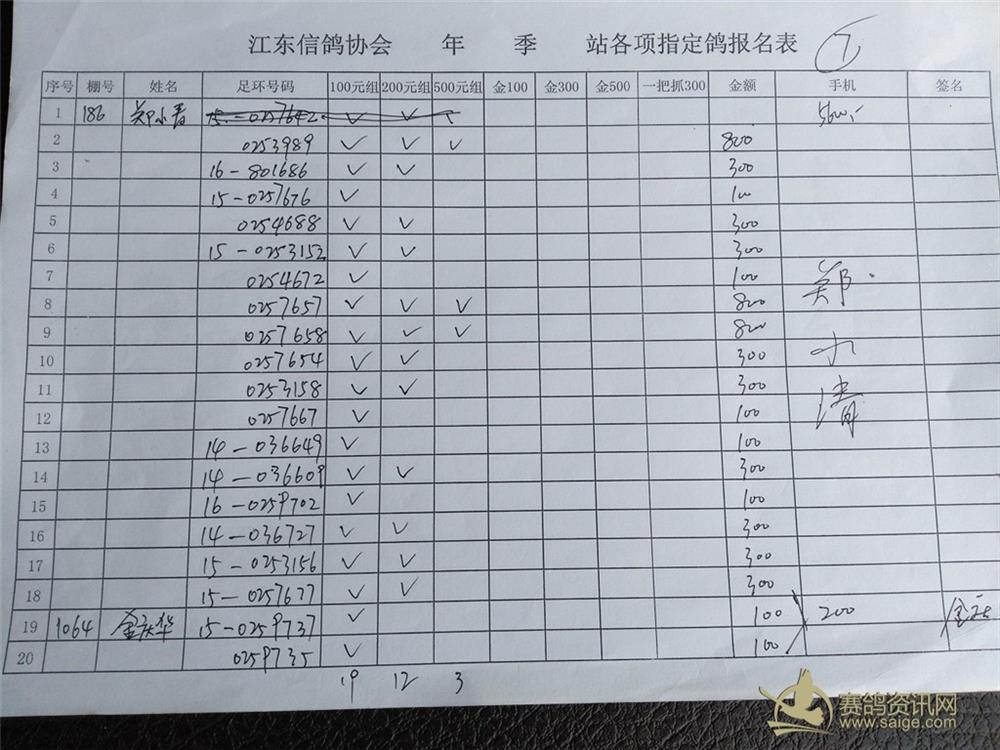 江东信鸽协会 年 季 站各项指定鸽报名表 7
序号 棚号 姓名 足环号码 100元组 200元组 500元组 金100 金300 金500 一把抓300 金额 手机 签名
1 186 郑小青 15-0257642 ✓ ✓ ✓ 5600
2 0253989 ✓ ✓ ✓ 800
3 16-801686 ✓ ✓ 300
4 15-0257676 ✓ 100
5 0254688 ✓ ✓ 300
6 15-0253152 ✓ ✓ 300
7 0254672 ✓ 100
8 0257657 ✓ ✓ ✓ 800
9 0257658 ✓ ✓ ✓ 800
10 0257654 ✓ ✓ 300
11 0253158 ✓ ✓ 300
12 0257667 ✓ 100
13 14-036649 ✓ 100
14 14-036609 ✓ ✓ 300
15 16-0259702 ✓ 100
16 14-036727 ✓ ✓ 300
17 15-0253156 ✓ ✓ 300
18 15-0257677 ✓ ✓ 300
郑小清
19 1064 金庆华 15-0259737 ✓ 100 200
20 0259735 ✓ 100
19 12 3
赛鸽资讯网
www.saige.com